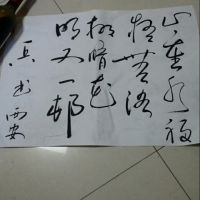 山重水複
疑無路
柳暗花
明又一邨
西安